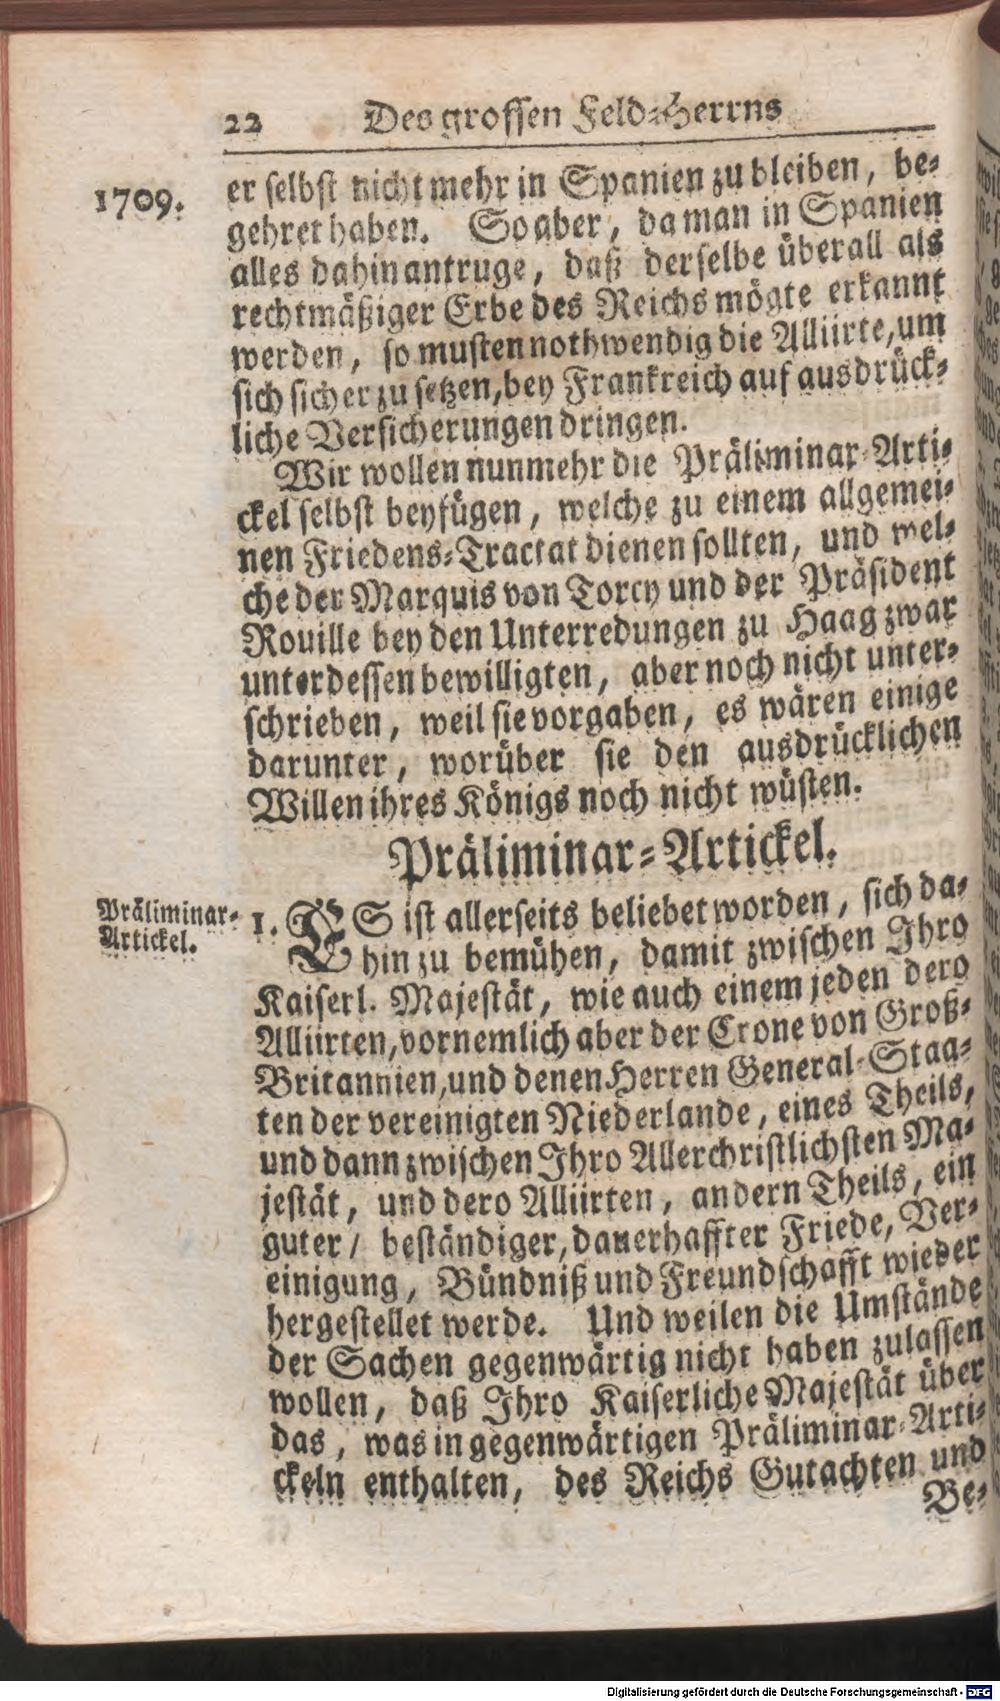 22 Des grossen Feld-Herrns
1709.
er selbst nicht mehr in Spanien zu bleiben, be-
gehret haben. So aber, da man in Spanien
alles dahin antruge, daß derselbe überall als
rechtmäßiger Erbe des Reichs mögte erkannt
werden, so musten nothwendig die Alliirte, um
sich sicher zu setzen, bey Franckreich auf ausdrück-
liche Versicherungen dringen.
Wir wollen nunmehr die Präliminar-Arti-
ckel selbst beyfügen, welche zu einem allgemei-
nen Friedens-Tractat dienen sollten, und wel-
che der Marquis von Torcy und der Präsident
Rouille bey den Unterredungen zu Haag zwar
unterdessen bewilligten, aber noch nicht unter-
schrieben, weil sie vorgaben, es wären einige
darunter, worüber sie den ausdrücklichen
Willen ihres Königs noch nicht wüsten.
Präliminar-Artickel.
Präliminar-
Artickel.
1. ES ist allerseits beliebet worden, sich da-
hin zu bemühen, damit zwischen Ihro
Kaiserl. Majestät, wie auch einem jeden dero
Alliirten, vornemlich aber der Crone von Groß-
Britannien, und denen Herren General-Staa-
ten der vereinigten Niederlande, eines Theils,
und dann zwischen Ihro Allerchristlichsten Ma-
jestät, und dero Alliirten, andern Theils, ein
guter / beständiger, dauerhaffter Friede, Ver-
einigung, Bündniß und Freundschafft wieder
hergestellet werde. Und weilen die Umstände
der Sachen gegenwärtig nicht haben zulassen
wollen, daß Ihro Kaiserliche Majestät über
das, was in gegenwärtigen Präliminar-Arti-
ckeln enthalten, des Reichs Gutachten und
Be-
Digitalisierung gefördert durch die Deutsche Forschungsgemeinschaft - DFG